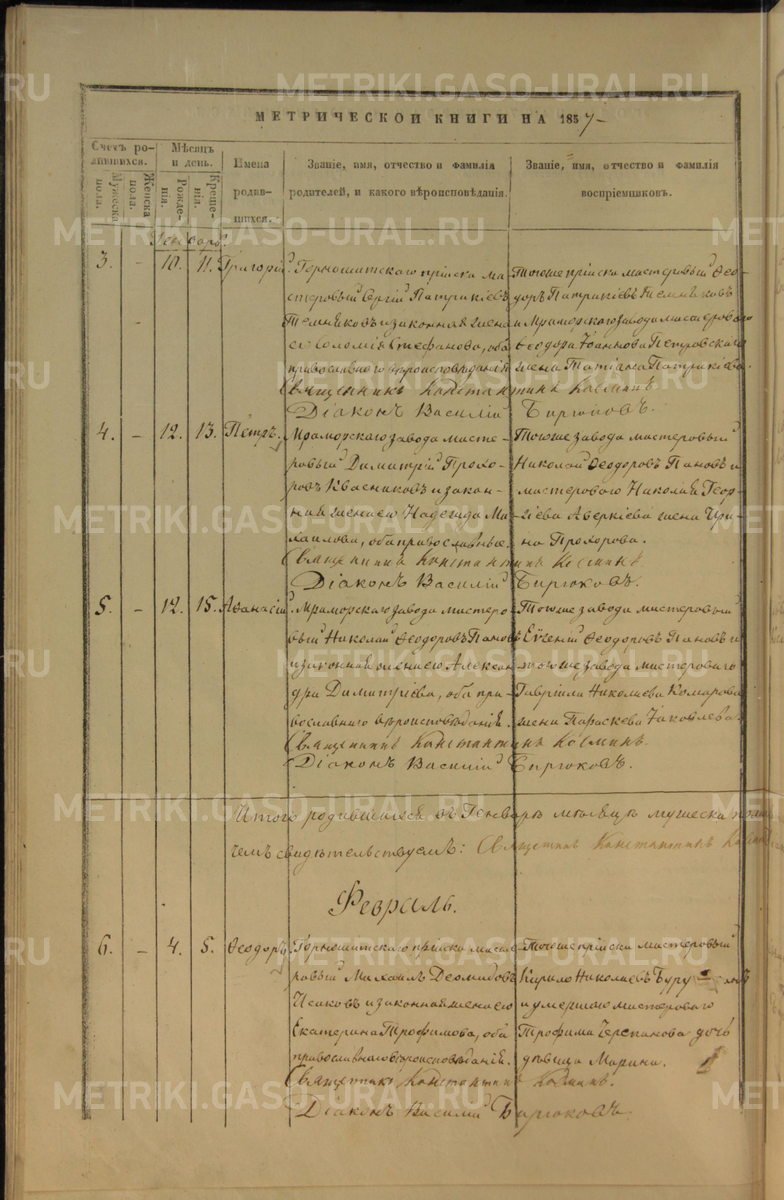 METRIKI.GASO-URAL.RU
МЕТРИЧЕСКОИ КНИГИ НА 1857
Счетъ родившихся.
Мужеска пола.
Женска пола.
Мѣсяцъ и день.
Рожденія.
Крещенія.
Имена родившихся.
Званіе, имя, отчество и фамилія родителей, и какого вѣроисповѣданія.
Званіе, имя, отчество и фамилія воспріемниковъ.
Генварь.
3. - 10. 11. Григорій.
Горнощитскаго пріиска мастеровый Сергій Патрикіевъ
Темниковъ и законная жена
его Соломія Стефанова, оба
православнаго вѣроисповѣданія
Тогоже пріиска мастеровый Ѳеодоръ Патрикіевъ Темниковъ
и Мраморскаго завода мастероваго
Ѳеодора Іоаннова Петровскаго
жена Татіана Патрикіева.
Священникъ Константинъ Косминъ.
Діаконъ Василій Бирюковъ.
4. - 12. 13. Петръ.
Мраморскаго завода мастеровый Димитрій Прохоровъ Квасниковъ и законная жена его Надежда Михаилова, оба православные.
Тогоже завода мастеровый
Николай Ѳеодоровъ Пановъ и
мастероваго Николая Георгіева Аверкіева жена Ирина Прохорова.
Священникъ Константинъ Косминъ
Діаконъ Василій Бирюковъ.
5. - 12. 15. Аѳанасій.
Мраморскаго завода мастеровый Николай Ѳеодоровъ Пановъ
и законная жена его Александра Димитріева, оба православнаго вѣроисповѣданія.
Тогоже завода мастеровый
Евгеній Ѳеодоровъ Пановъ и
тогоже завода мастероваго
Гавріила Николаева Комарова
жена Параскева Іаковлева.
Священникъ Константинъ Косминъ.
Діаконъ Василій Бирюковъ.
Итого родившихся въ Генварѣ мѣсяцѣ мужеска
чемъ свидѣтельствуемъ: Священникъ Константинъ
Февраль.
6. - 4. 5. Ѳеодоръ
Горнощитскаго пріиска мастеровый Михаилъ Деомидовъ
Исаковъ и законная жена его
Екатерина Трофимова, оба
православнаго вѣроисповѣданія.
Тогоже пріиска мастеровый
Кирило Николаевъ
и умершаго мастероваго
Трофима Черепанова дочь
дѣвица Марина.
Священникъ Константинъ Косминъ.
Діаконъ Василій Бирюковъ.